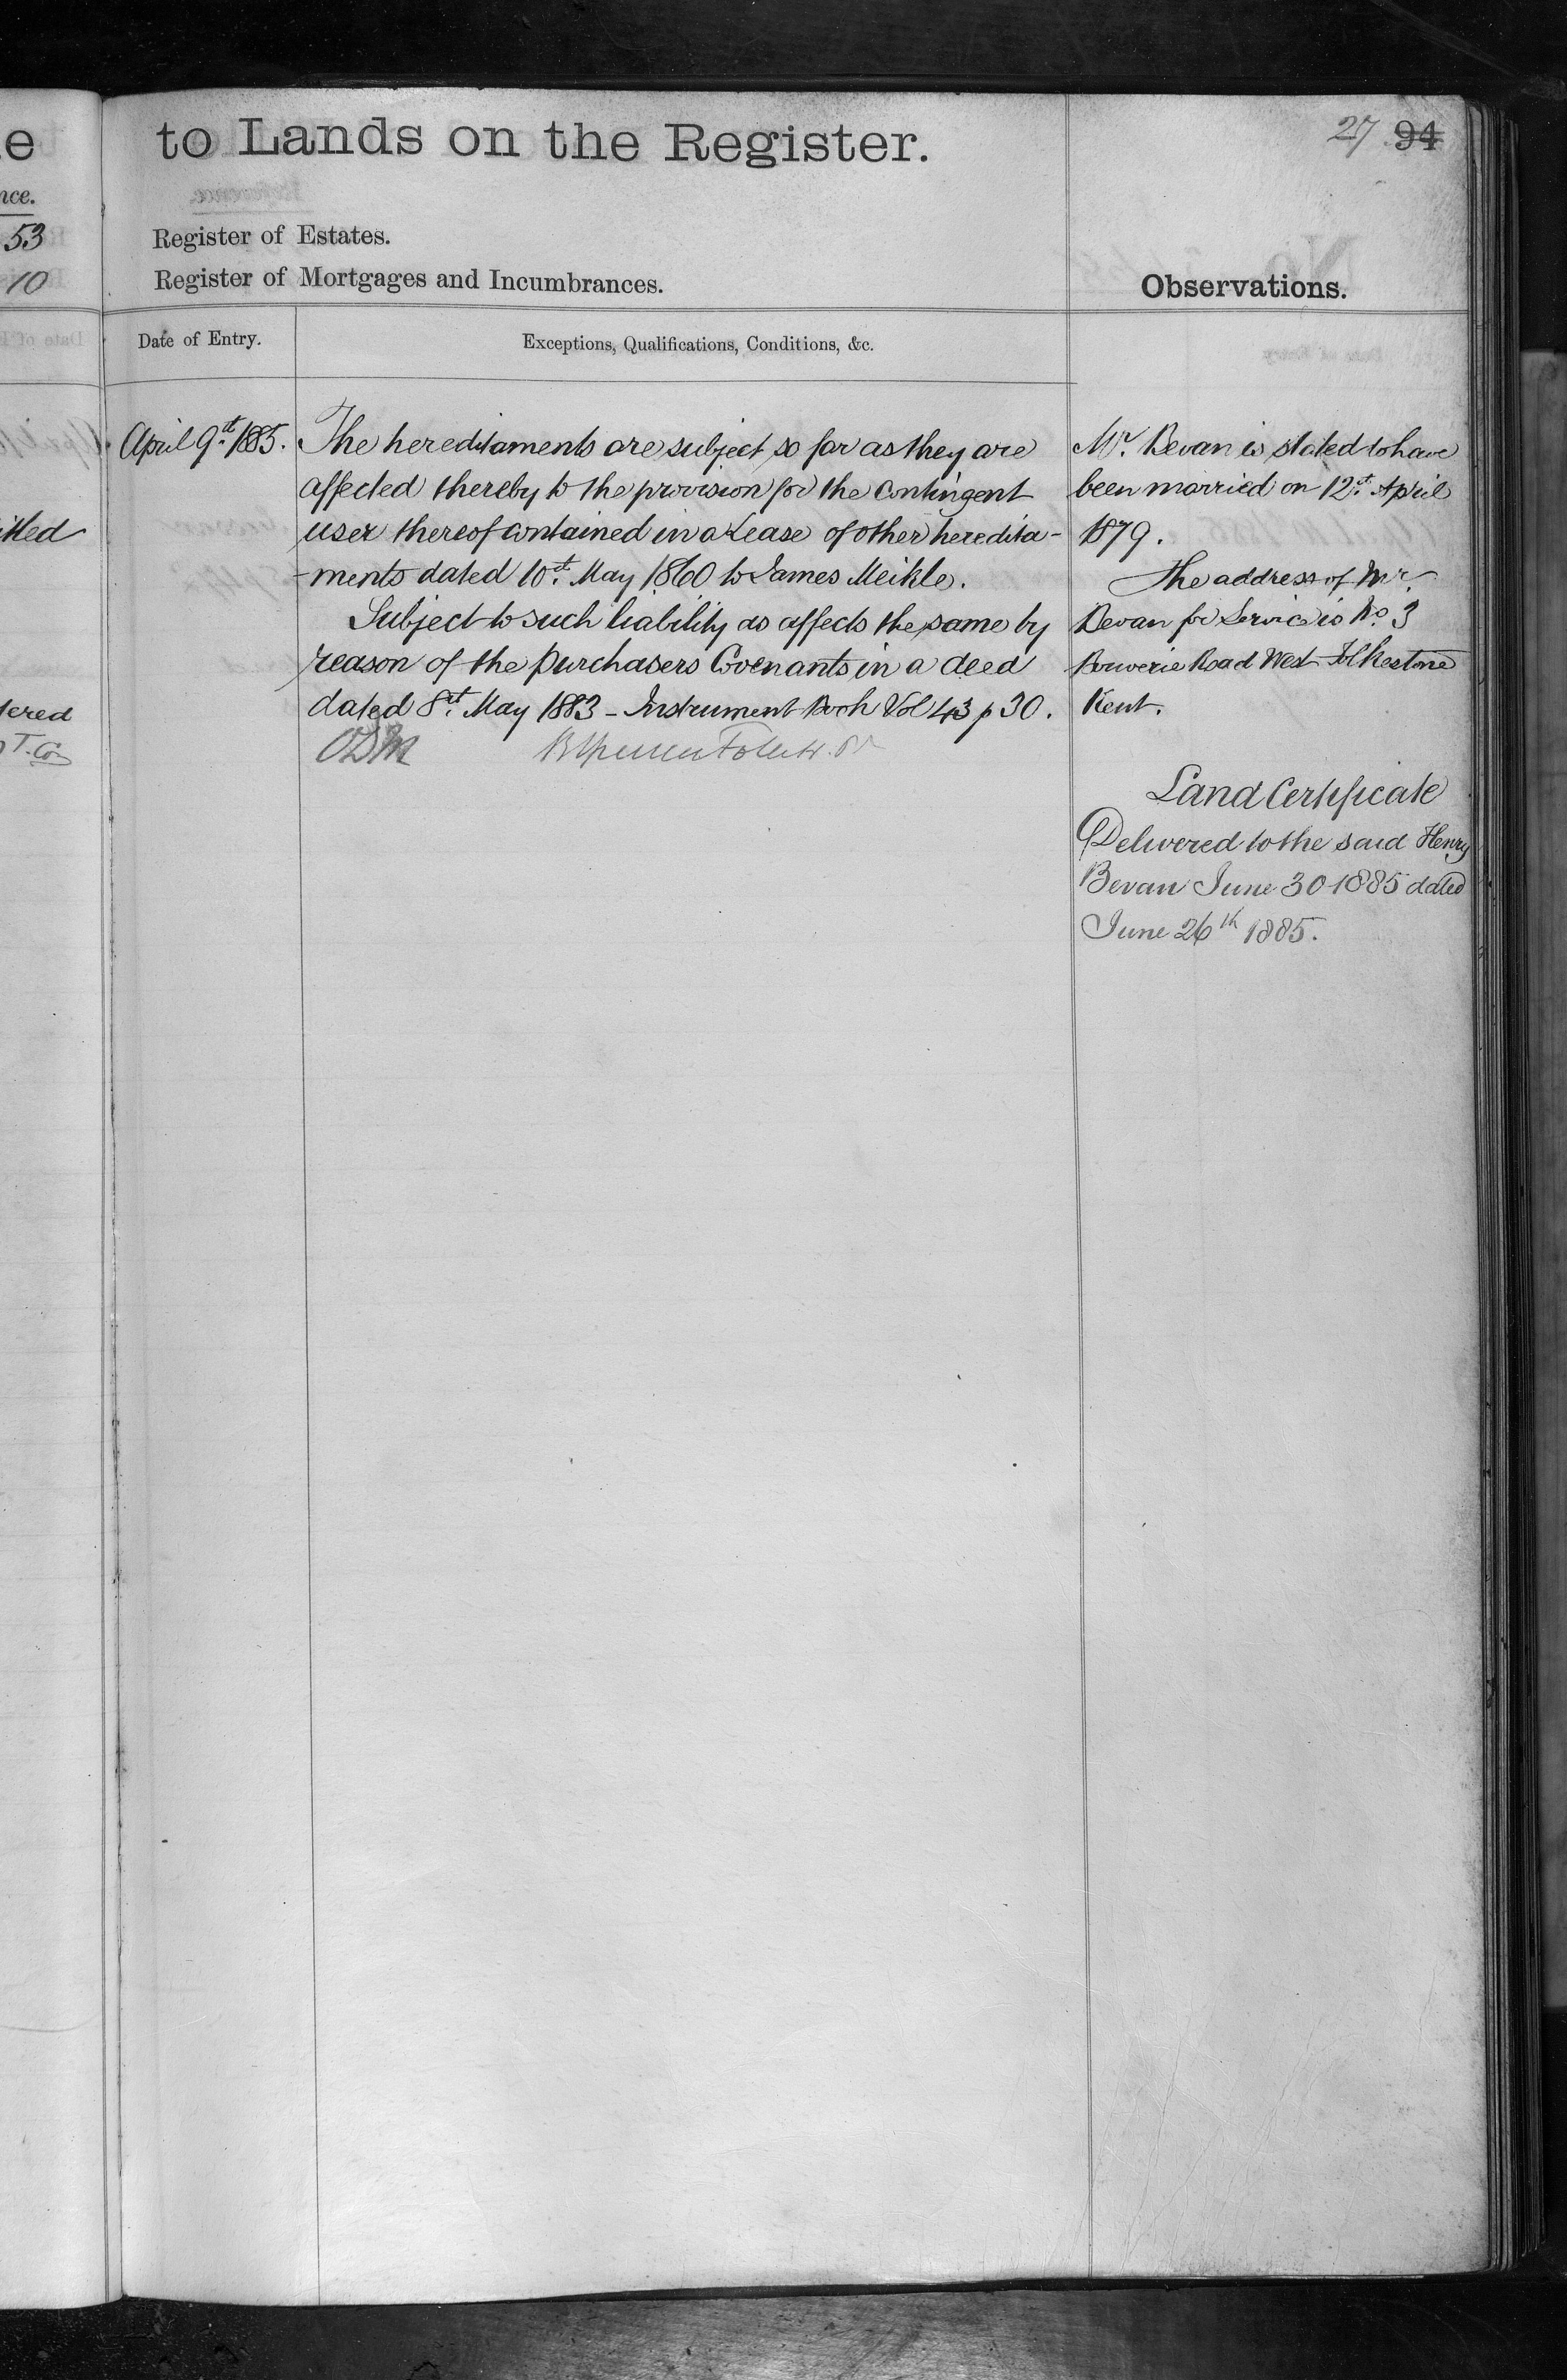 e
nce.
53
10
itled
tered
T. Co
27 94
to Lands on the Register.
Register of Estates.
Register of Mortgages and Incumbrances.
Observations.
Date of Entry.
Exceptions, Qualifications, Conditions, &c.
April 9.th 1885.
The hereditaments are subject so far as they are
affected thereby to the provision for the contingent
user thereof contained in a Lease of other heredita-
-ments dated 10th. May 1860 to James Meikle.
Subject to such liability as affects the same by
reason of the purchasers Covenants in a deed
dated 8th. May 1883 - Instrument Book Vol 43 p 30.
Mr. Bevan is stated to have
been married on 12th. April
1879.
The address of Mr.
Bevan for Service is No. 3
Bouverie Road West Folkestone
Kent.
Land Certificate
Delivered to the said Henry
Bevan June 30 1885 dated
June 26th 1885.